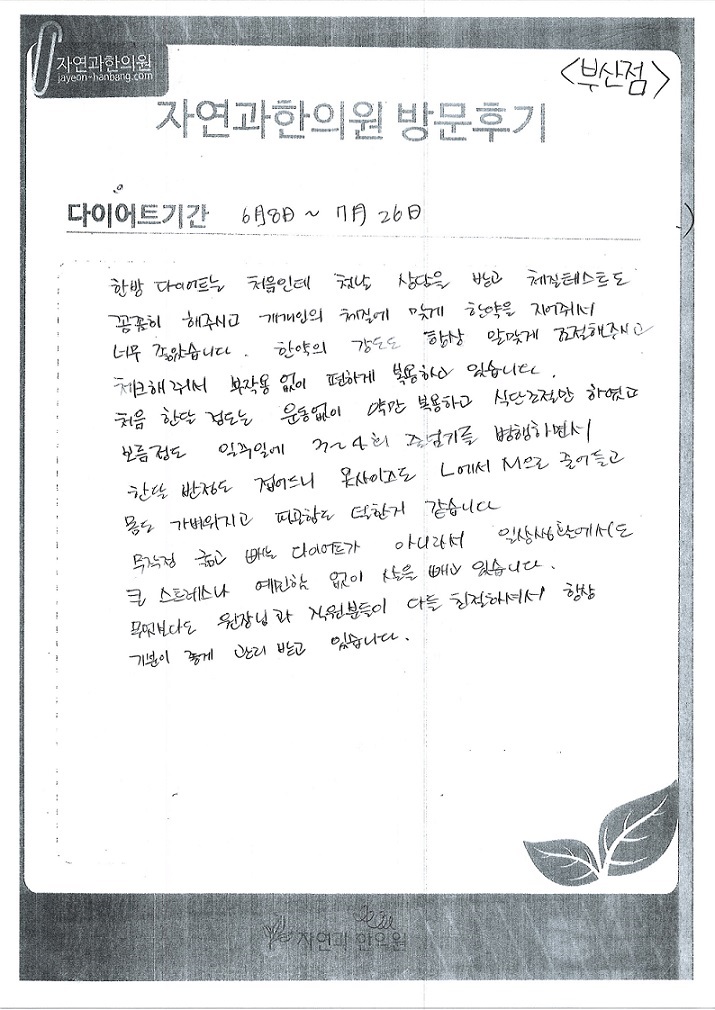 자연과한의원
jayeon-hanbang.com
<부산점>
자연과한의원 방문후기
다이어트기간 6月8日 ~ 7月 26日
한방 다이어트는 처음인데 첫날 상담을 받고 체질테스트도
꼼꼼히 해주시고 개개인의 체질에 맞게 한약을 지어줘서
너무 좋았습니다. 한약의 강도도 항상 알맞게 조절해주시고
체크해줘서 부작용 없이 편하게 복용하고 있습니다.
처음 한달 정도는 운동없이 약만 복용하고 식단조절만 하였고
보름정도 일주일에 3~4회 줄넘기를 병행하면서
한달 반정도 접어드니 옷사이즈도 L에서 M으로 줄어들고
몸도 가벼워지고 피곤함도 덕한거 같습니다
무작정 굶고 빼는 다이어트가 아니라서 일상생활에서도
큰 스트레스나 예민함 없이 살을 빼고 있습니다.
무엇보다도 원장님과 직원분들이 다들 친절하셔서 항상
기분이 좋게 관리 받고 있습니다.
자연과한의원